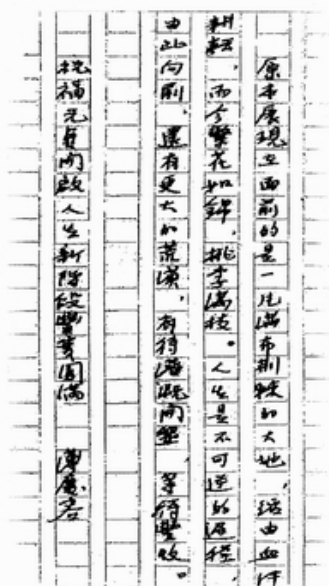 原本展現在面前的是一片滿布荆棘的大地，經由血汗
耕耘，而今繁花如錦，桃李滿枝。人生是不可逆的過程
由此向前，還有更大的荒漠，有待灌溉開墾，等待豐收。
祝福元貞開啟人生新階段豐美圓滿